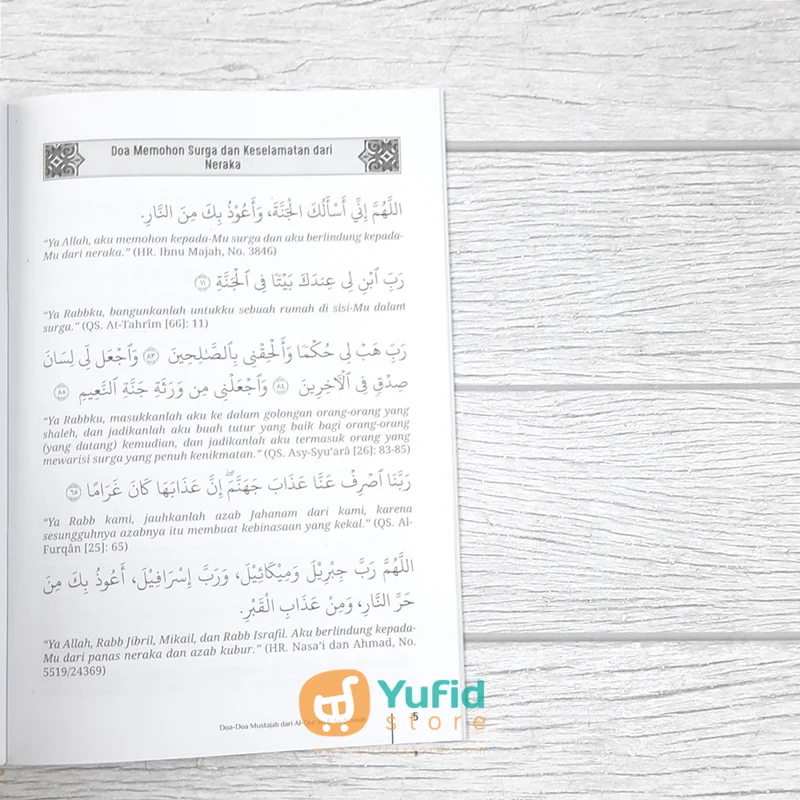 Doa Memohon Surga dan Keselamatan dari
Neraka
اللَّهُمَّ إِنِّي أَسْأَلُكَ الْجَنَّةَ، وَأَعُوْذُ بِكَ مِنَ النَّارِ.
“Ya Allah, aku memohon kepada-Mu surga dan aku berlindung kepada-
Mu dari neraka.” (HR. Ibnu Majah, No. 3846)
رَبِّ ٱبْنِ لِى عِندَكَ بَيْتًا فِى ٱلْجَنَّةِ ١١
“Ya Rabbku, bangunkanlah untukku sebuah rumah di sisi-Mu dalam
surga.” (QS. At-Tahrîm [66]: 11)
رَبِّ هَبْ لِى حُكْمًا وَأَلْحِقْنِى بِٱلصَّـٰلِحِينَ ٨٣ وَٱجْعَل لِّى لِسَانَ
صِدْقٍ فِى ٱلْـَٔاخِرِينَ ٨٤ وَٱجْعَلْنِى مِن وَرَثَةِ جَنَّةِ ٱلنَّعِيمِ ٨٥
“Ya Rabbku, masukkanlah aku ke dalam golongan orang-orang yang
shaleh, dan jadikanlah aku buah tutur yang baik bagi orang-orang
(yang datang) kemudian, dan jadikanlah aku termasuk orang yang
mewarisi surga yang penuh kenikmatan.” (QS. Asy-Syu’arâ [26]: 83-85)
رَبَّنَا ٱصْرِفْ عَنَّا عَذَابَ جَهَنَّمَ ۖ إِنَّ عَذَابَهَا كَانَ غَرَامًا ٦٥
“Ya Rabb kami, jauhkanlah azab Jahanam dari kami, karena
sesungguhnya azabnya itu membuat kebinasaan yang kekal.” (QS. Al-
Furqân [25]: 65)
اللَّهُمَّ رَبَّ جِبْرِيْلَ وَمِيْكَائِيْلَ، وَرَبَّ إِسْرَافِيْلَ، أَعُوْذُ بِكَ مِنَ
حَرِّ النَّارِ، وَمِنْ عَذَابِ الْقَبْرِ.
“Ya Allah, Rabb Jibril, Mikail, dan Rabb Israfil. Aku berlindung kepada-
Mu dari panas neraka dan azab kubur.” (HR. Nasa’i dan Ahmad, No.
5519/24369)
Yufid
store
Doa-Doa Mustajab dari Al-Qur 5
www.yufidstore.com